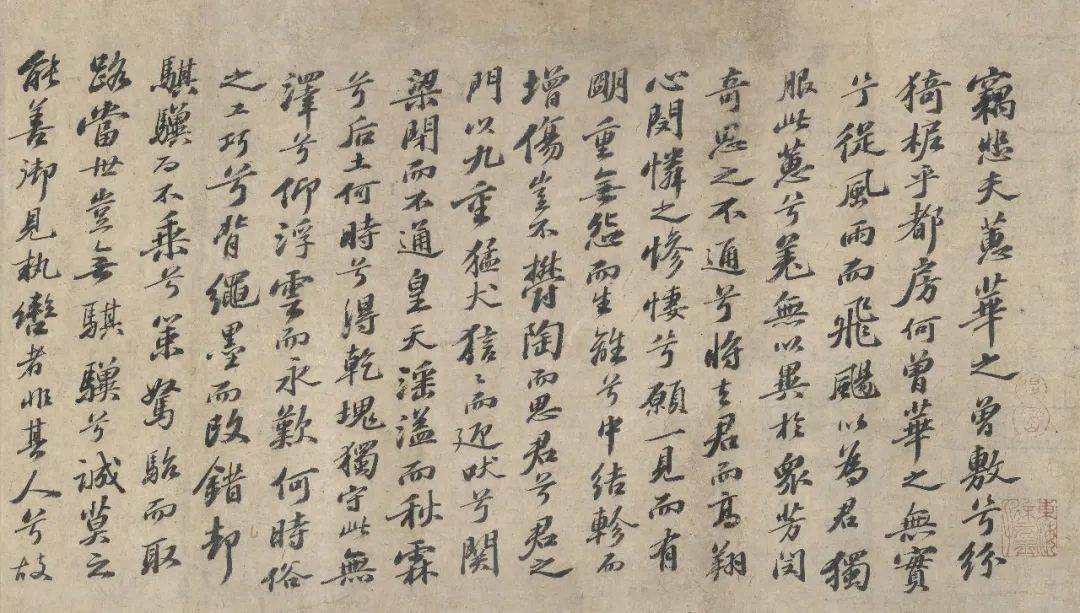 竊悲夫蕙華之曾敷兮紛
猗柅乎都房何曾華之無實
兮從風雨而飛颺以為君獨
服此蕙兮羌無以異於眾芳閔
奇思之不通兮將去君而高翔
心閔憐之慘悽兮願一見而有
明重無怨而生離兮中結軫而
增傷豈不鬱陶而思君兮君之
門以九重猛犬狺〻而迎吠兮関
梁閉而不通皇天滛溢而秋霖
兮后土何時兮得乾塊獨守此無
澤兮仰浮雲而永歎何時俗
之工巧兮背繩墨而改錯却
騏驥而不乘兮策駑駘而取
路當世豈無騏驥兮誠莫之
能善御見執轡者非其人兮故